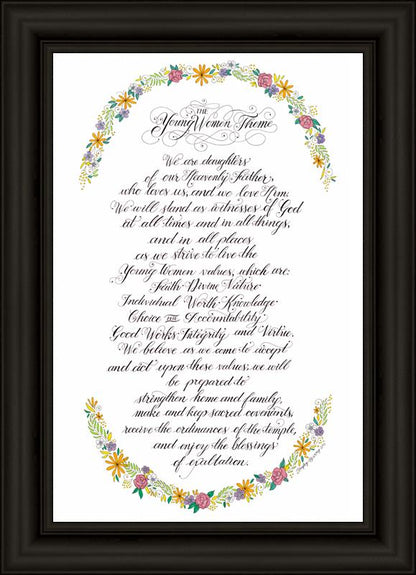 THE
Young Women Theme
We are daughters
of our Heavenly Father,
who loves us, and we love Him.
We will stand as witnesses of God
at all times and in all things,
and in all places
as we strive to live the
Young Women values, which are:
Faith · Divine Nature
Individual Worth · Knowledge
Choice and Accountability
Good Works · Integrity and Virtue.
We believe as we come to accept
and act upon these values, we will
be prepared to
strengthen home and family,
make and keep sacred covenants,
receive the ordinances of the temple,
and enjoy the blessings
of exaltation.